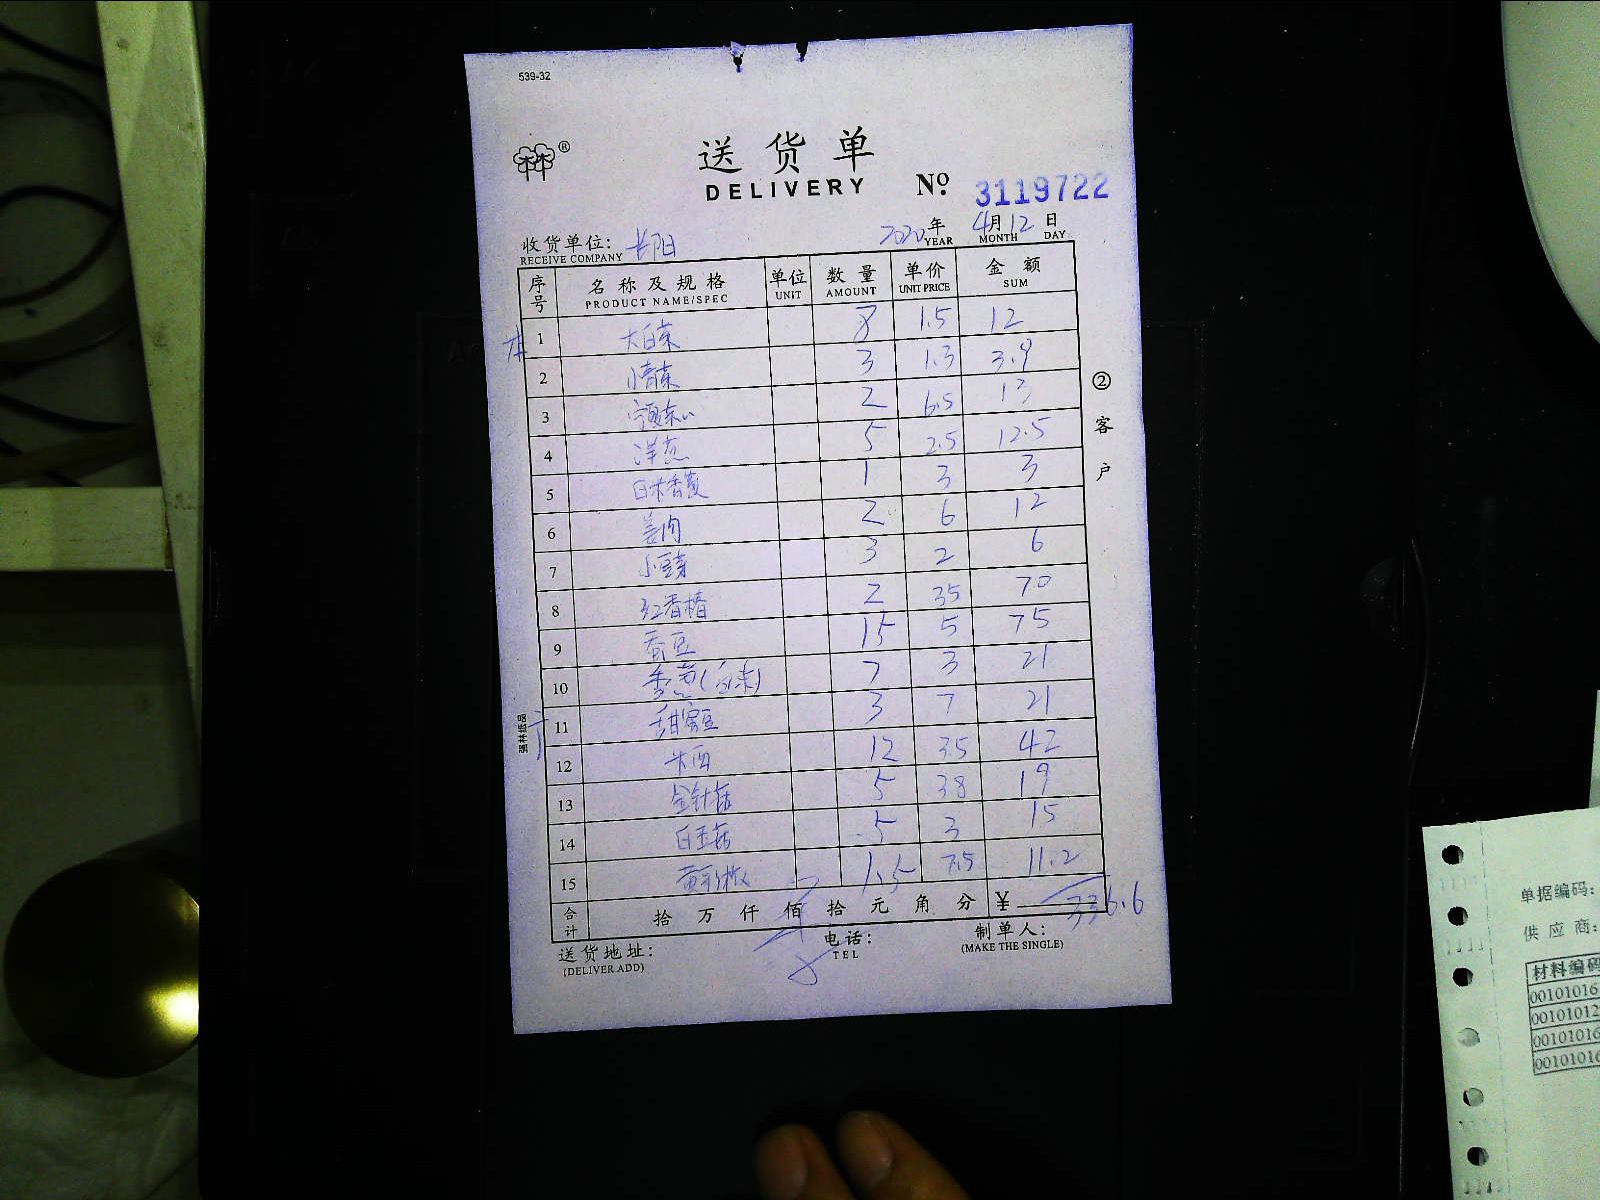 539-32
®
送货单
DELIVERY
№ 3119722
收货单位: 长阳
RECEIVE COMPANY
2020年 4月12日
YEAR MONTH DAY
序号 名称及规格 单位 数量 单价 金额
PRODUCT NAME/SPEC UNIT AMOUNT UNIT PRICE SUM
1 大白菜 8 1.5 12
2 小青菜 3 1.3 3.9
3 宁夏菜心 2 6.5 13
4 洋葱 5 2.5 12.5
5 1 3 3
6 姜肉 2 6 12
7 小豆芽 3 2 6
8 红香椿 2 35 70
9 蚕豆 15 5 75
10 香葱 7 3 21
11 甜蜜豆 3 7 21
12 12 3.5 42
13 金针菇 5 3.8 19
14 白玉菇 5 3 15
15 1.5 7.5 11.2
合计 拾 万 仟 佰 拾 元 角 分 ¥ 336.6
送货地址: 电话: 制单人:
(DELIVER ADD) TEL (MAKE THE SINGLE)
②客户
强林纸品
单据编码:
供应商:
材料编码
00101016
00101012
00101016
00101016